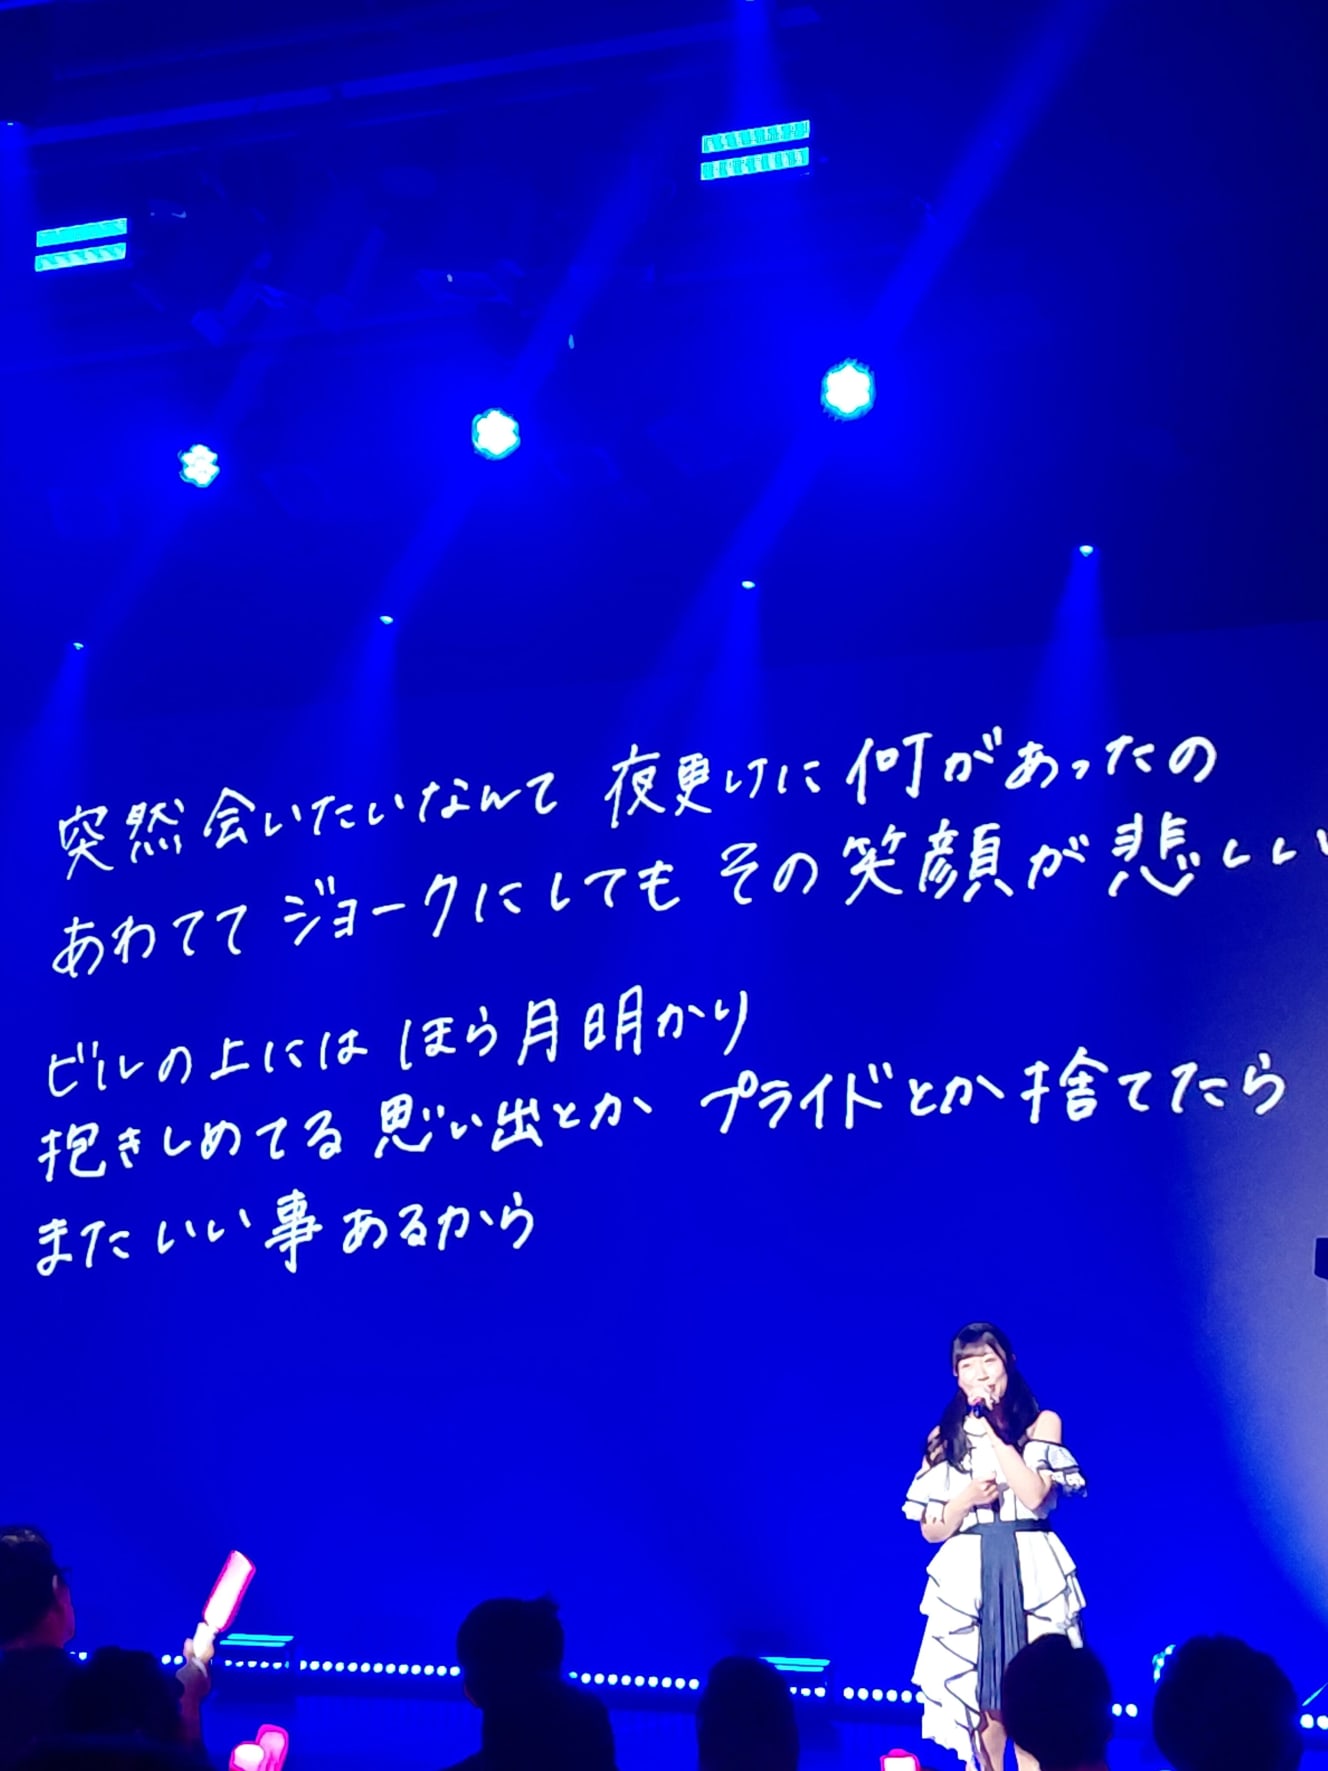 突然会いたいなんて 夜更けに何があったの
あわててジョークにしても その笑顔が悲しい
ビルの上には ほら月明かり
抱きしめてる思い出とか プライドとか捨てたら
またいい事あるから